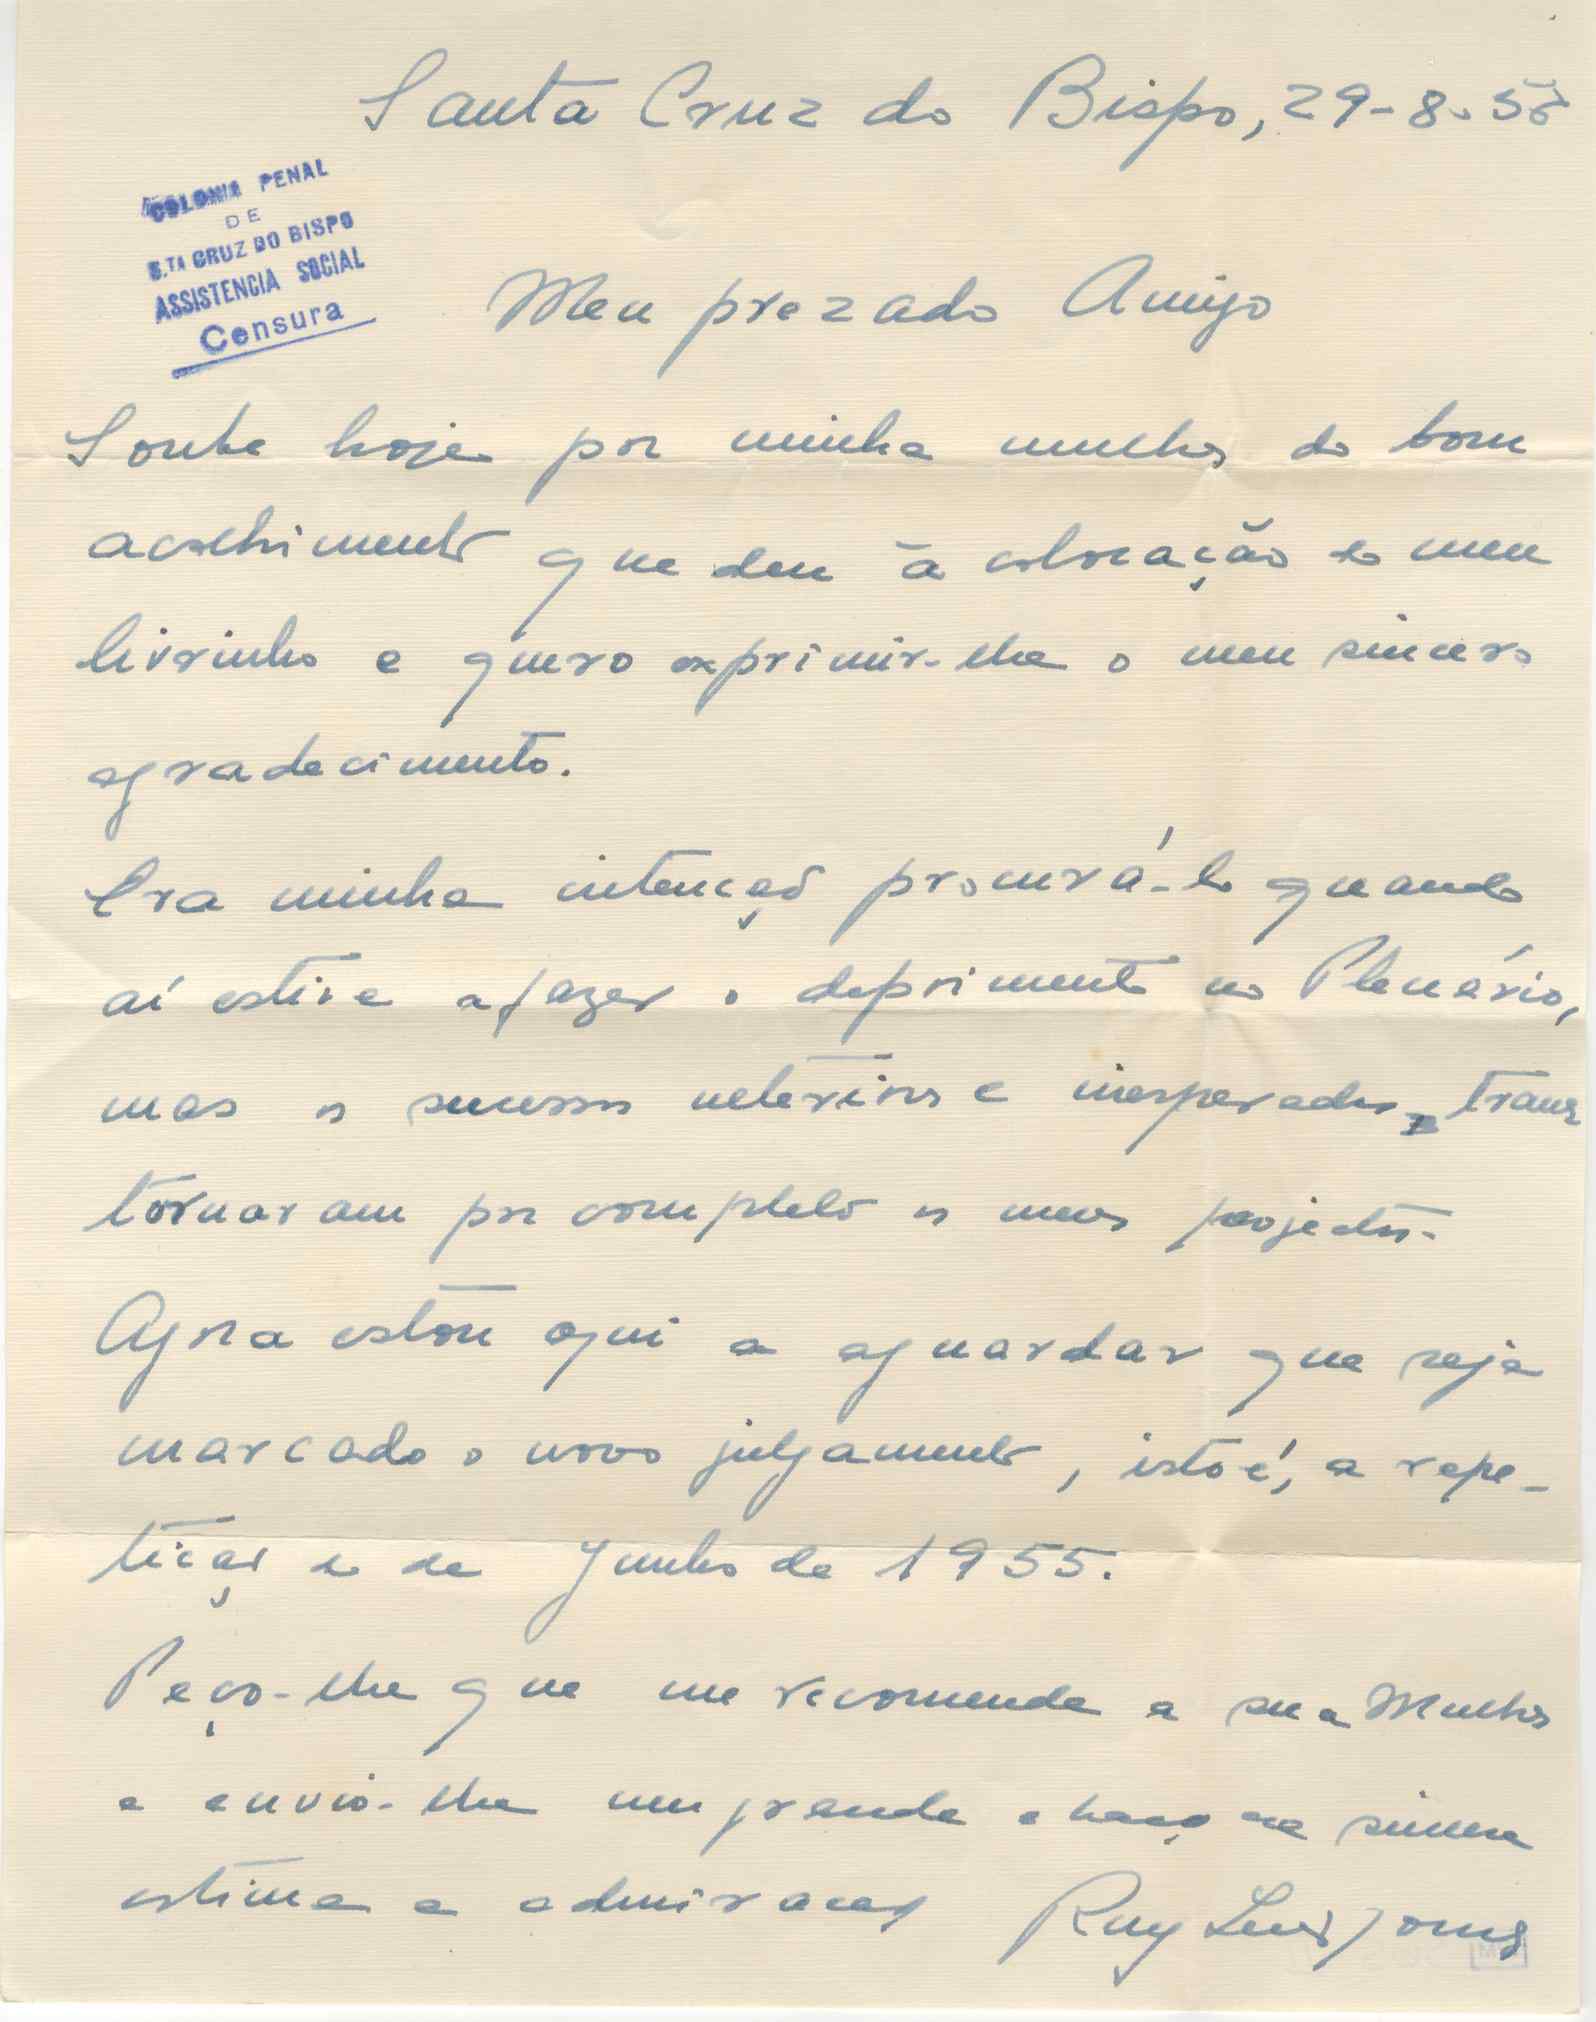 Santa Cruz do Bispo, 29-8-58
COLONIA PENAL
DE
S.TA CRUZ DO BISPO
ASSISTENCIA SOCIAL
Censura
Meu prezado Amigo
Soube hoje por minha mulher do bom
acolhimento que deu à colocação do meu
livrinho e quero exprimir-lhe o meu sincero
agradecimento.
Era minha intenção procurá-lo quando
aí estive a fazer o depoimento no Plenário,
mas os sucessos ulteriores e inesperados trans
tornaram por completo os meus projectos.
Agora estou aqui a aguardar que seja
marcado o novo julgamento, isto é, a repe-
tição do de Junho de 1955.
Peço-lhe que me recomende a sua Mulher
e envio-lhe um grande abraço de sincera
estima e admiração Ruy Luís Gomes